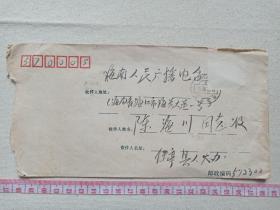 570005
海南人民广播电台
收件人地址：
海南省海口市海府大道一号
收件人姓名：
陈海川 同志收
寄件人地址：
保亭县人大办
邮政编码 572300